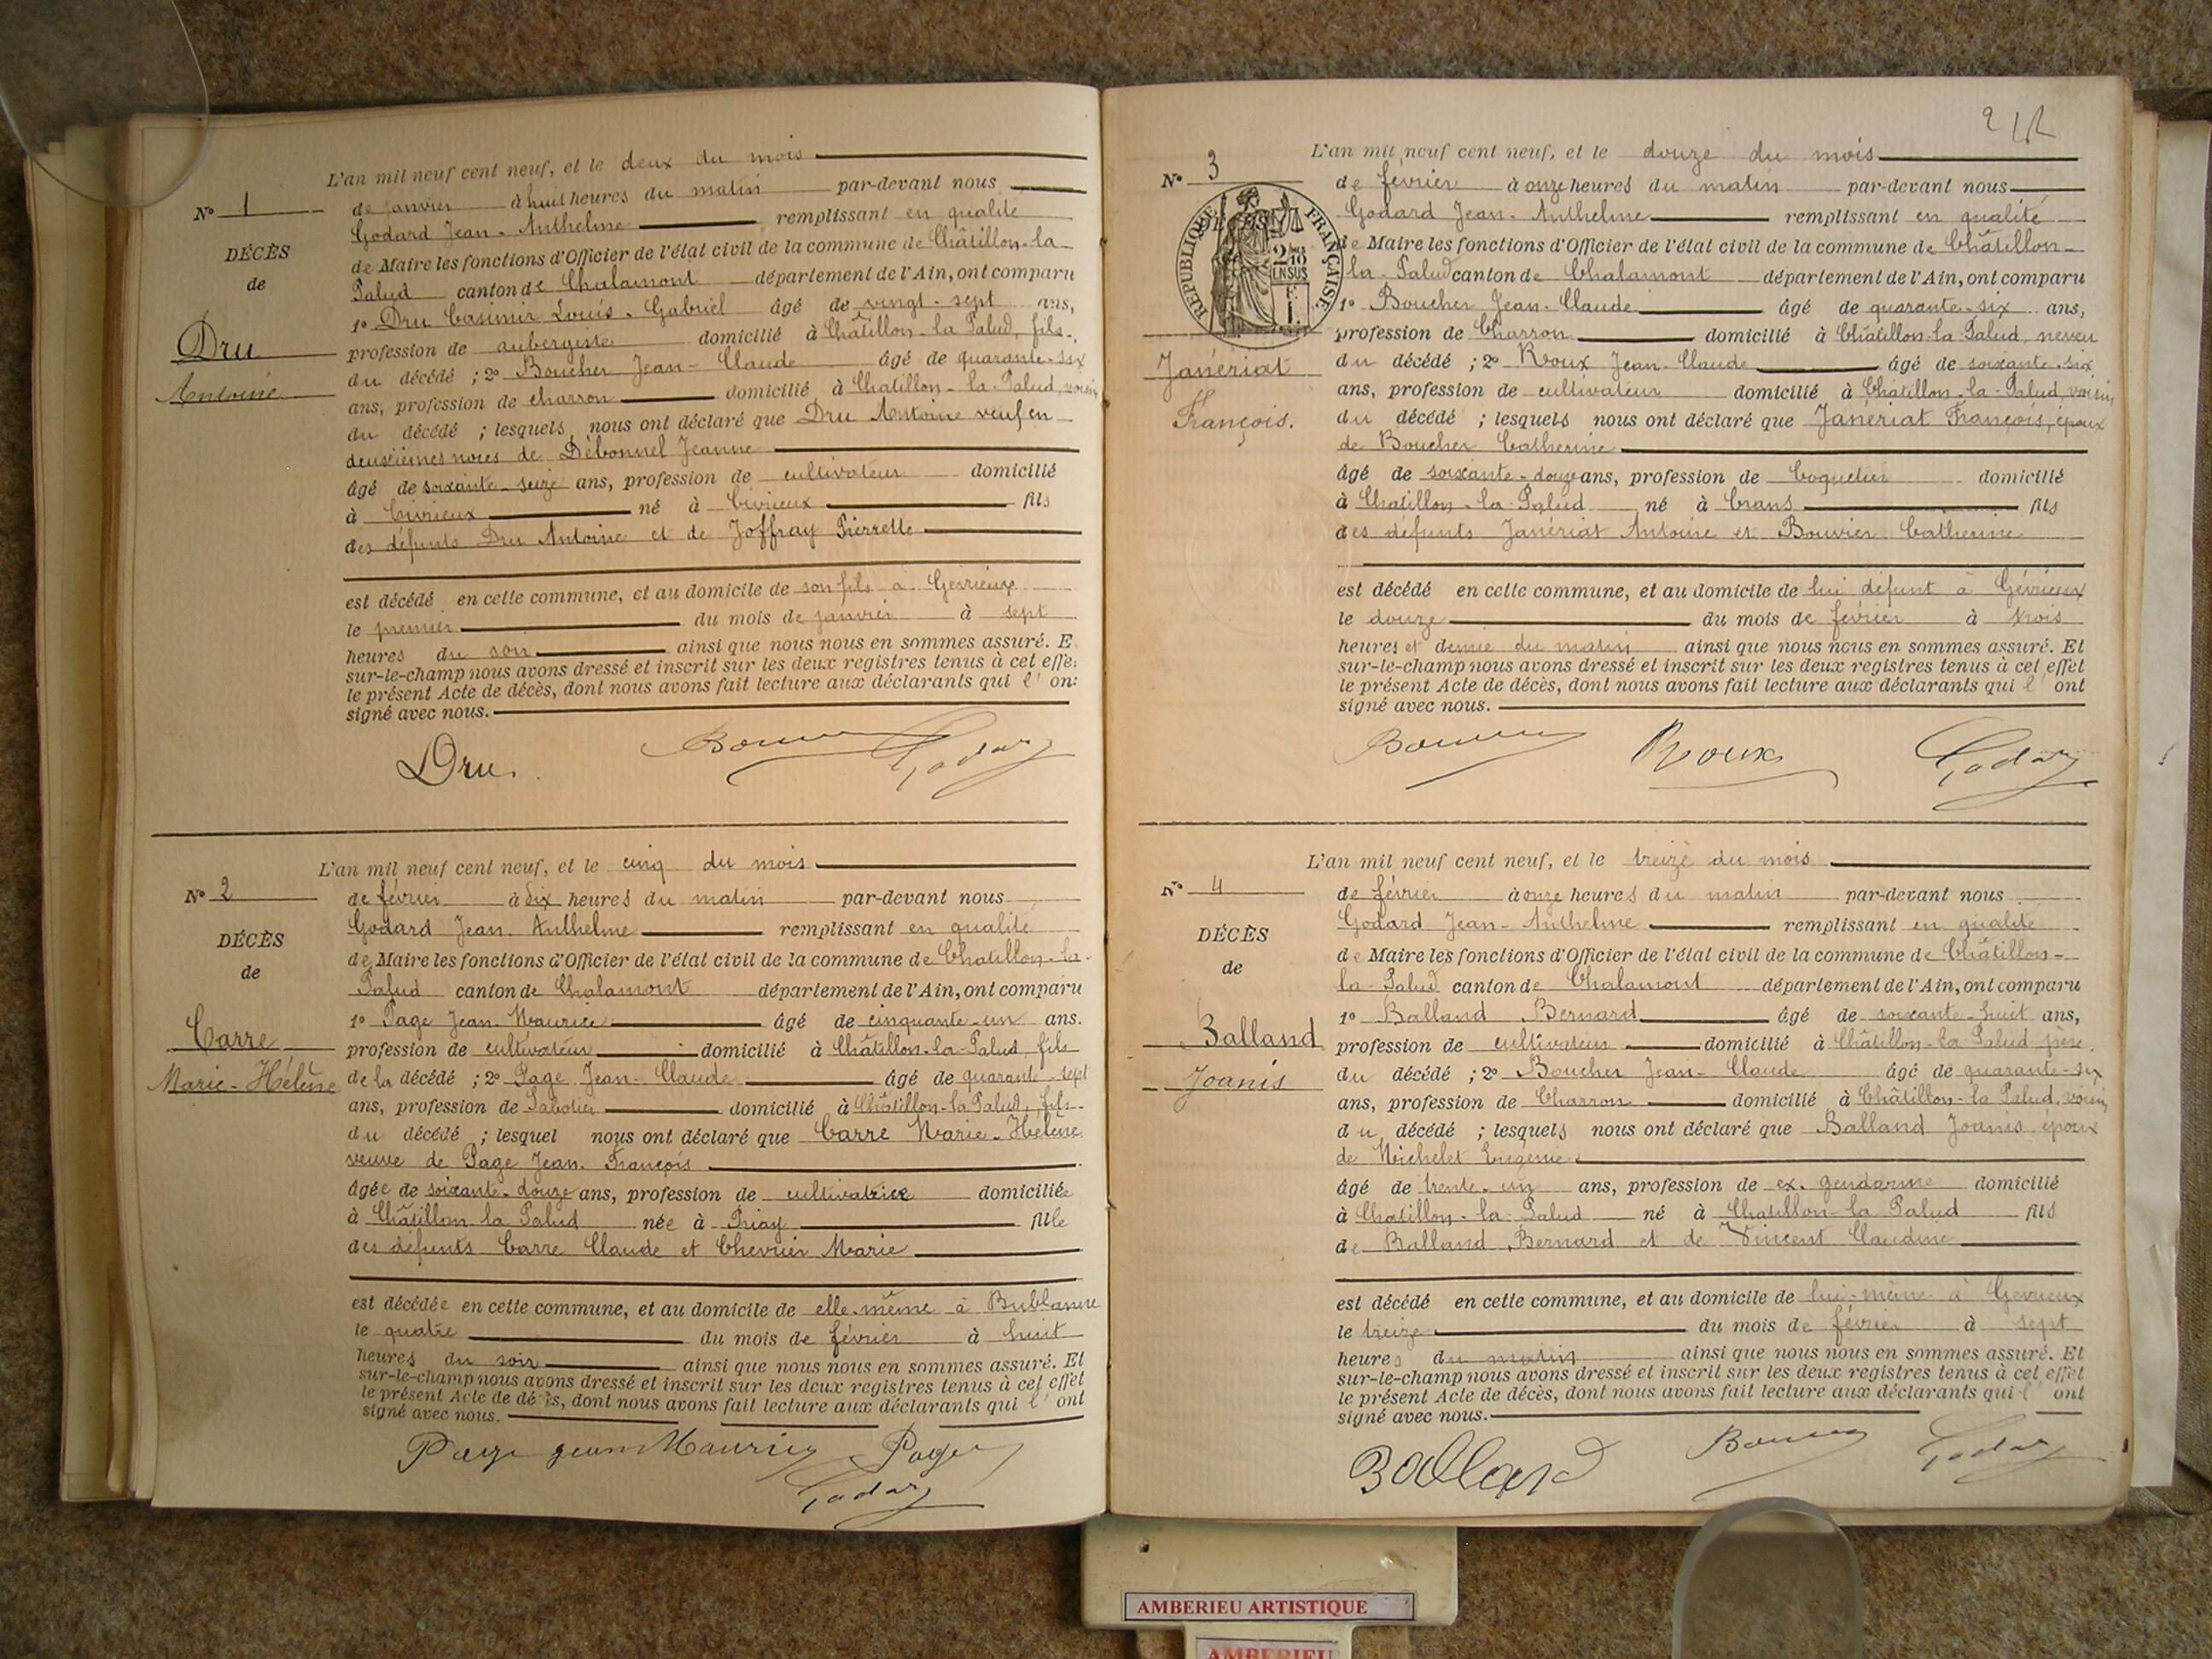 L'an mil neuf cent neuf, et le deux du mois
N° 1
de janvier à huit heures du matin par-devant nous
Godard Jean-Anthelme remplissant en qualité
DÉCÈS
de Maire les fonctions d'Officier de l'état civil de la commune de Châtillon-la-
de
Palud canton de Chalamont département de l'Ain, ont comparu
1° Dru Casimir Louis-Gabriel âgé de vingt-sept ans,
Dru
profession de aubergiste domicilié à Châtillon-la Palud, fils
du décédé ; 2° Boucher Jean-Claude âgé de quarante-six
Antoine
ans, profession de charron domicilié à Chatillon-la-Palud, voisin
du décédé ; lesquels nous ont déclaré que Dru Antoine veuf en
deuxièmes noces de Débonnel Jeanne
âgé de soixante-seize ans, profession de cultivateur domicilié
à Civrieux né à Civrieux fils
des défunts Dru Antoine et de Joffray Pierrette
est décédé en cette commune, et au domicile de son fils à Gévrieux
le premier du mois de janvier à sept
heures du soir ainsi que nous nous en sommes assuré. E
sur-le-champ nous avons dressé et inscrit sur les deux registres tenus à cet effe
le présent Acte de décès, dont nous avons fait lecture aux déclarants qui l' on
signé avec nous.
Dru. Godard
L'an mil neuf cent neuf, et le cinq du mois
N° 2
de février à dix heures du matin par-devant nous
Godard Jean-Anthelme remplissant en qualité
DÉCÈS
de Maire les fonctions d'Officier de l'état civil de la commune de Chatillon-la-
de
Palud canton de Chalamont département de l'Ain, ont comparu
1° Page Jean-Maurice âgé de cinquante-un ans.
Carre
profession de cultivateur domicilié à Châtillon-la-Palud, fils
Marie-Hélène
de la décédé ; 2° Page Jean-Claude âgé de quarante-sept
ans, profession de Sabotier domicilié à Châtillon-la Palud, fils
du décédé ; lesquel nous ont déclaré que Carre Marie-Hélène
veuve de Page Jean-François
âgée de soixante-douze ans, profession de cultivatrice domiciliée
à Châtillon la Palud née à Priay fille
des défunts Carre Claude et Chevrier Marie
est décédée en cette commune, et au domicile de elle-même à Bublanne
le quatre du mois de février à huit
heures du soir ainsi que nous nous en sommes assuré. Et
sur-le-champ nous avons dressé et inscrit sur les deux registres tenus à cet effet
le présent Acte de décès, dont nous avons fait lecture aux déclarants qui l' ont
signé avec nous.
Page jean Maurice Page
Godard
L'an mil neuf cent neuf, et le douze du mois
N° 3
de février à onze heures du matin par-devant nous
Godard Jean-Anthelme remplissant en qualité
RÉPUBLIQUE FRANÇAISE
de Maire les fonctions d'Officier de l'état civil de la commune de Châtillon-
la-Palud canton de Chalamont département de l'Ain, ont comparu
1° Boucher Jean-Claude âgé de quarante-six ans,
profession de Charron domicilié à Châtillon-la-Palud, neveu
Janériat
du décédé ; 2° Roux Jean-Claude âgé de soixante-six
ans, profession de cultivateur domicilié à Châtillon-la-Palud, voisin
François.
du décédé ; lesquels nous ont déclaré que Janériat François, époux
de Boucher Catherine
âgé de soixante-douze ans, profession de Coquetier domicilié
à Chatillon-la-Palud né à Crans fils
des défunts Janériat Antoine et Bouvier Catherine
est décédé en cette commune, et au domicile de lui défunt à Gévrieux
le douze du mois de février à trois
heures et demie du matin ainsi que nous nous en sommes assuré. Et
sur-le-champ nous avons dressé et inscrit sur les deux registres tenus à cet effet
le présent Acte de décès, dont nous avons fait lecture aux déclarants qui l' ont
signé avec nous.
Roux Godard
L'an mil neuf cent neuf, et le treize du mois
N° 4
de février à onze heures du matin par-devant nous
Godard Jean-Anthelme remplissant en qualité
DÉCÈS
de Maire les fonctions d'Officier de l'état civil de la commune de Châtillon-
de
la-Palud canton de Chalamont département de l'Ain, ont comparu
1° Balland Bernard âgé de soixante-huit ans,
Balland
profession de cultivateur domicilié à Châtillon-la Palud père
Joanis
du décédé ; 2° Boucher Jean-Claude âgé de quarante-six
ans, profession de Charron domicilié à Châtillon-la Palud, voisin
du décédé ; lesquels nous ont déclaré que Balland Joanis époux
de Michelet Eugénie
âgé de trente-un ans, profession de ex-gendarme domicilié
à Chatillon-la-Palud né à Chatillon-la Palud fils
de Balland Bernard et de Vincent Claudine
est décédé en cette commune, et au domicile de lui-même à Gévrieux
le treize du mois de février à sept
heures du matin ainsi que nous nous en sommes assuré. Et
sur-le-champ nous avons dressé et inscrit sur les deux registres tenus à cet effet
le présent Acte de décès, dont nous avons fait lecture aux déclarants qui l' ont
signé avec nous.
Balland Godard
AMBERIEU ARTISTIQUE
AMBERIEU